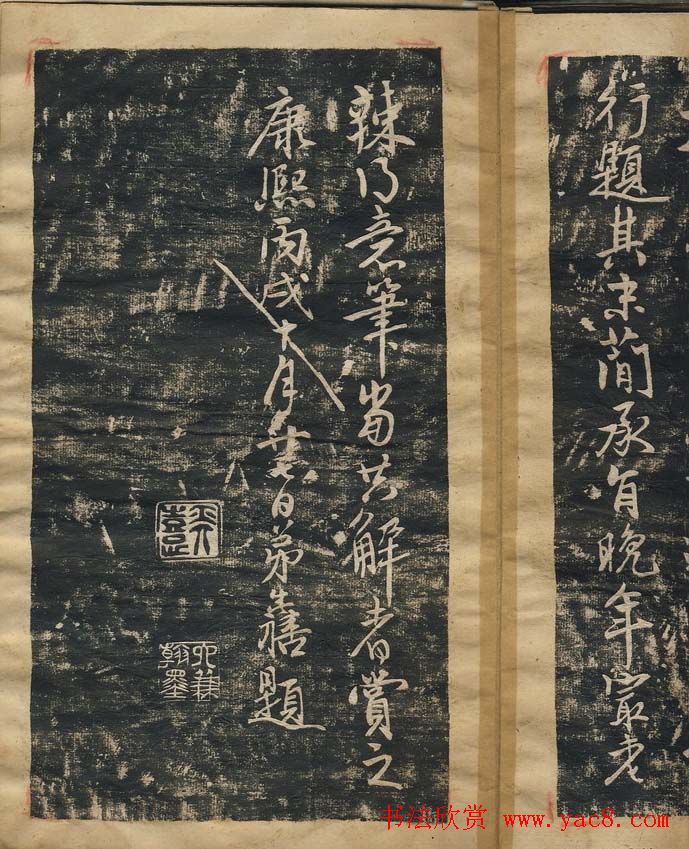 行題其末蘭承旨晚年最老
辣得意筆當共解者賞之
康熙丙戌十月日弟題
翰墨
书法欣赏 www.yac8.com